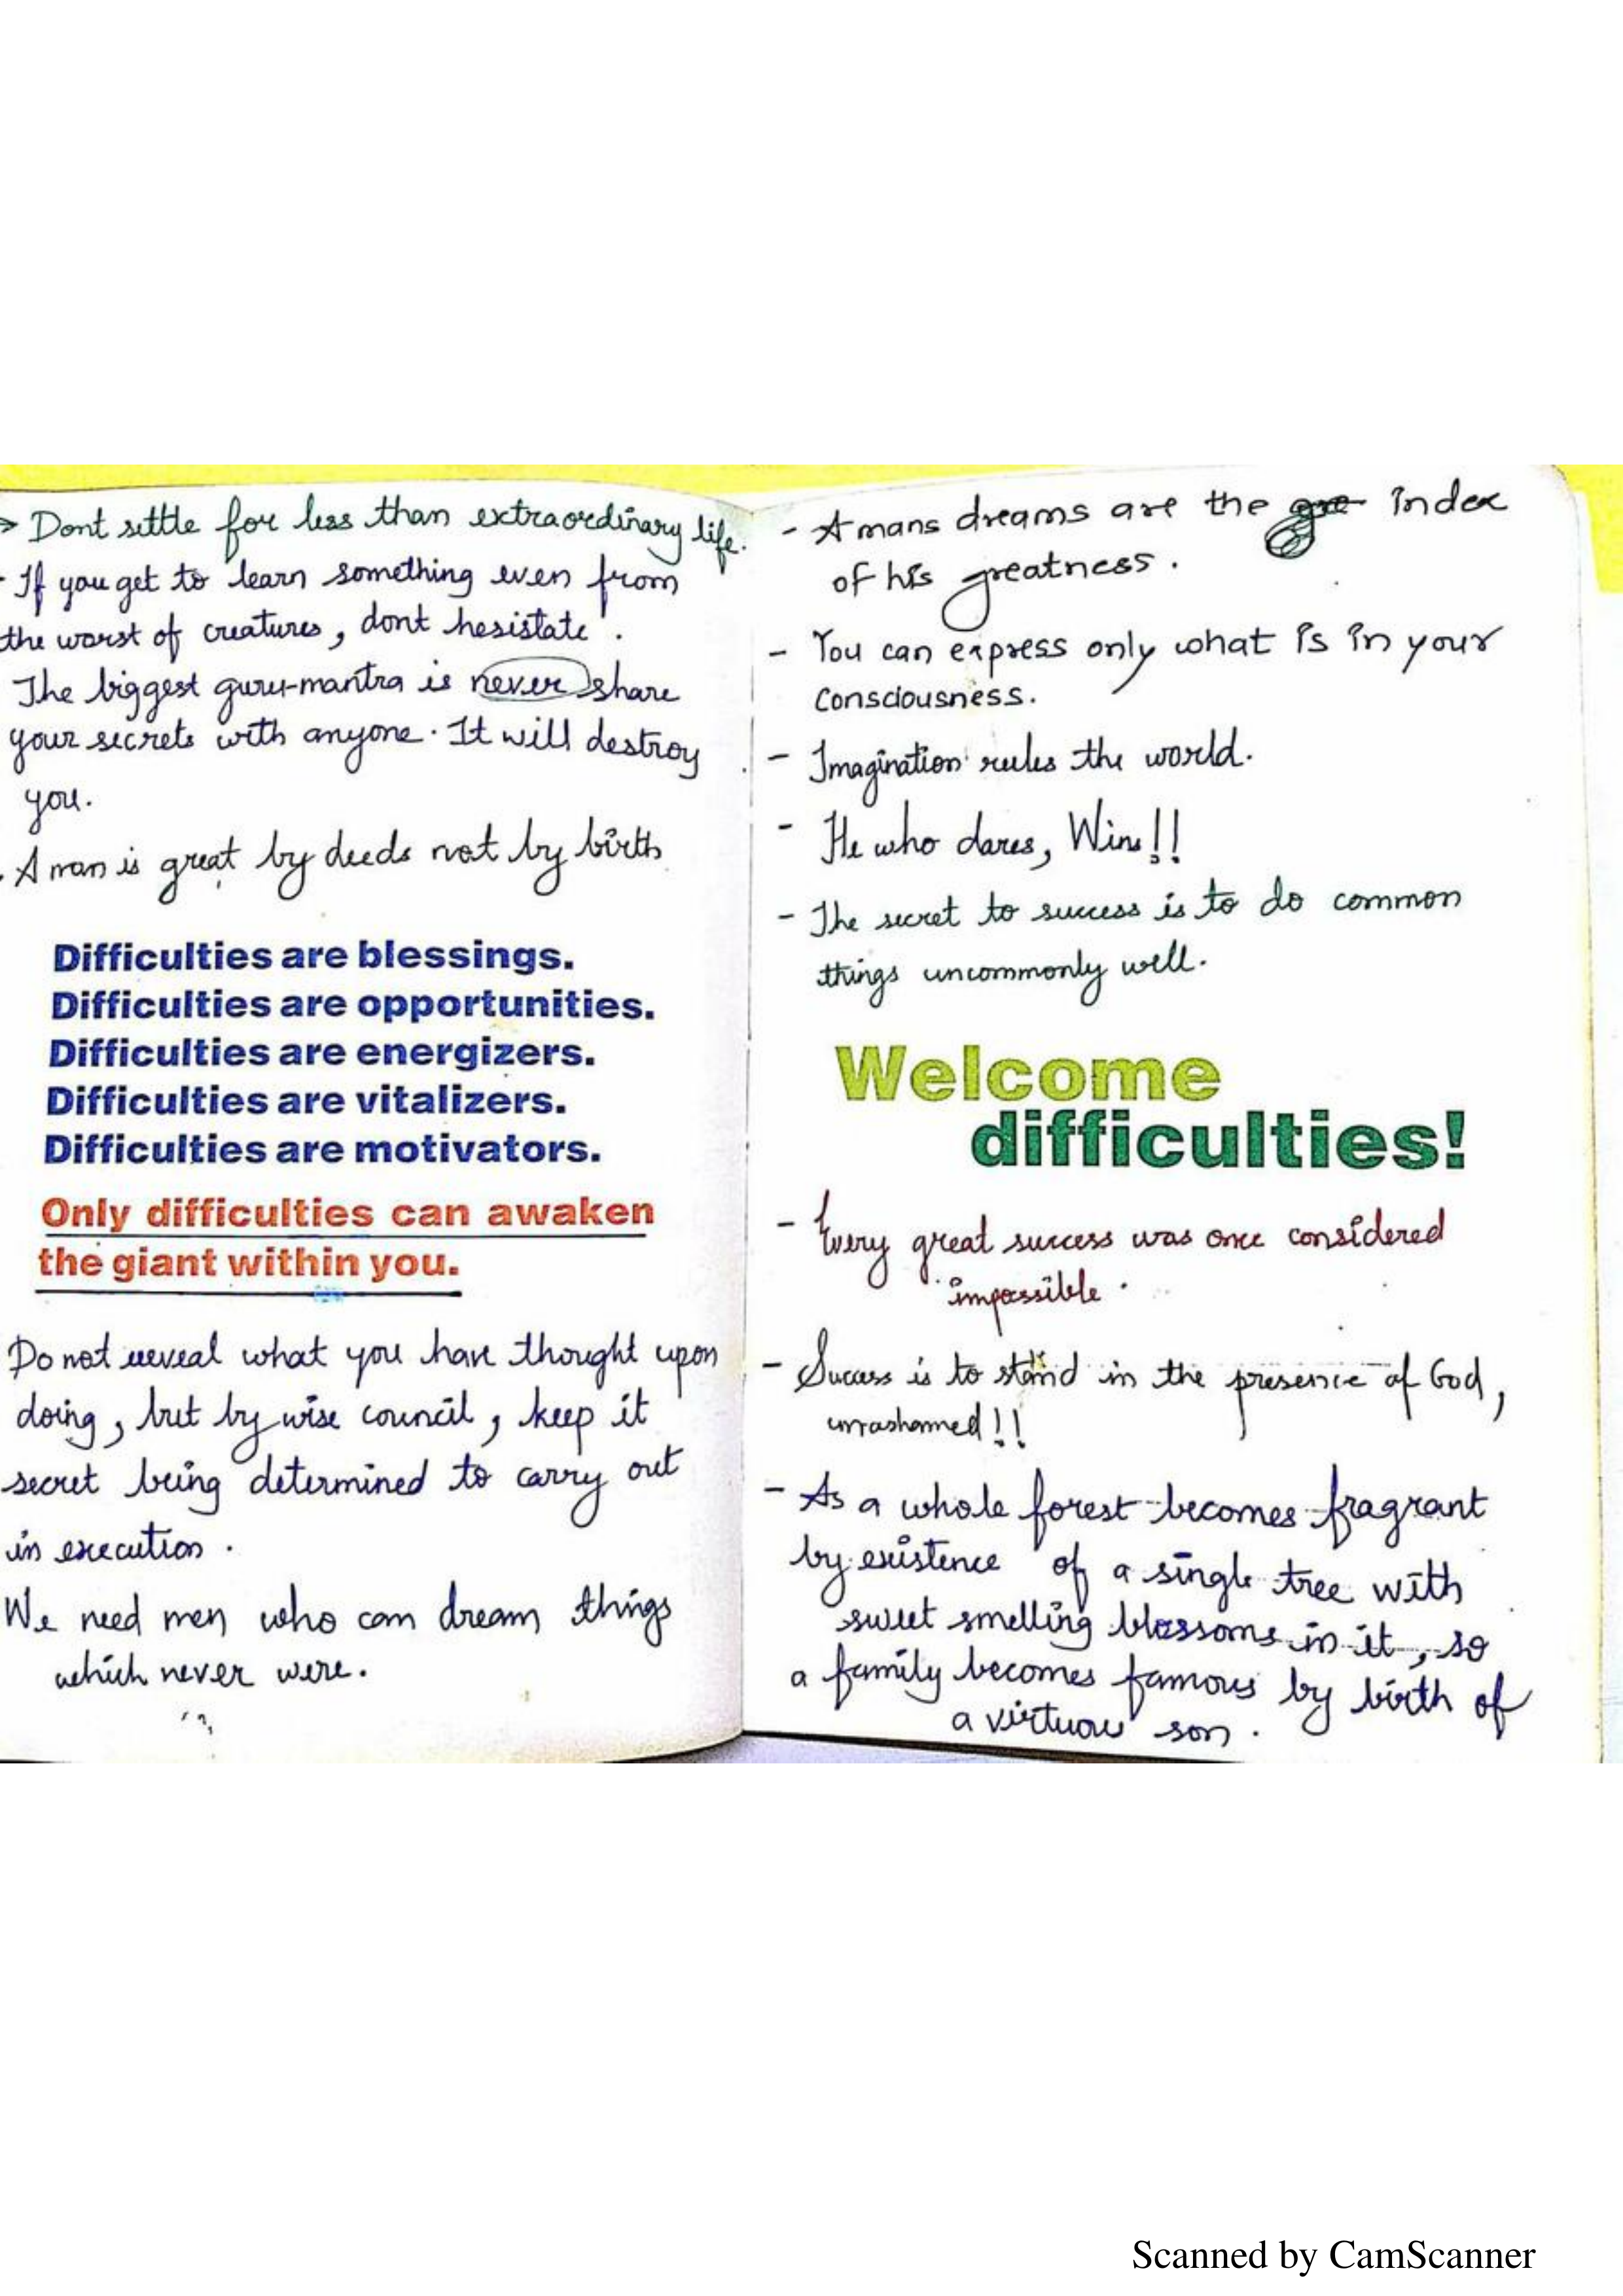 > Dont settle for less than extraordinary life.
- If you get to learn something even from
the worst of creatures, dont hesistate.
The biggest guru-mantra is never share
your secrets with anyone. It will destroy
you.
. A man is great by deeds not by birth
Difficulties are blessings.
Difficulties are opportunities.
Difficulties are energizers.
Difficulties are vitalizers.
Difficulties are motivators.
Only difficulties can awaken
the giant within you.
Do not reveal what you have thought upon
doing, but by wise council, keep it
secret being determined to carry out
in execution.
We need men who can dream things
which never were.
- A mans dreams are the gre index
of his greatness.
- You can express only what is in your
consciousness.
- Imagination rules the world.
- He who dares, Wins!!
- The secret to success is to do common
things uncommonly well.
Welcome
difficulties!
- Every great success was once considered
impossible.
- Success is to stand in the presence of God,
unashamed!!
- As a whole forest becomes fragrant
by existence of a single tree with
sweet smelling blossoms in it, so
a family becomes famous by birth of
a virtuous son.
Scanned by CamScanner